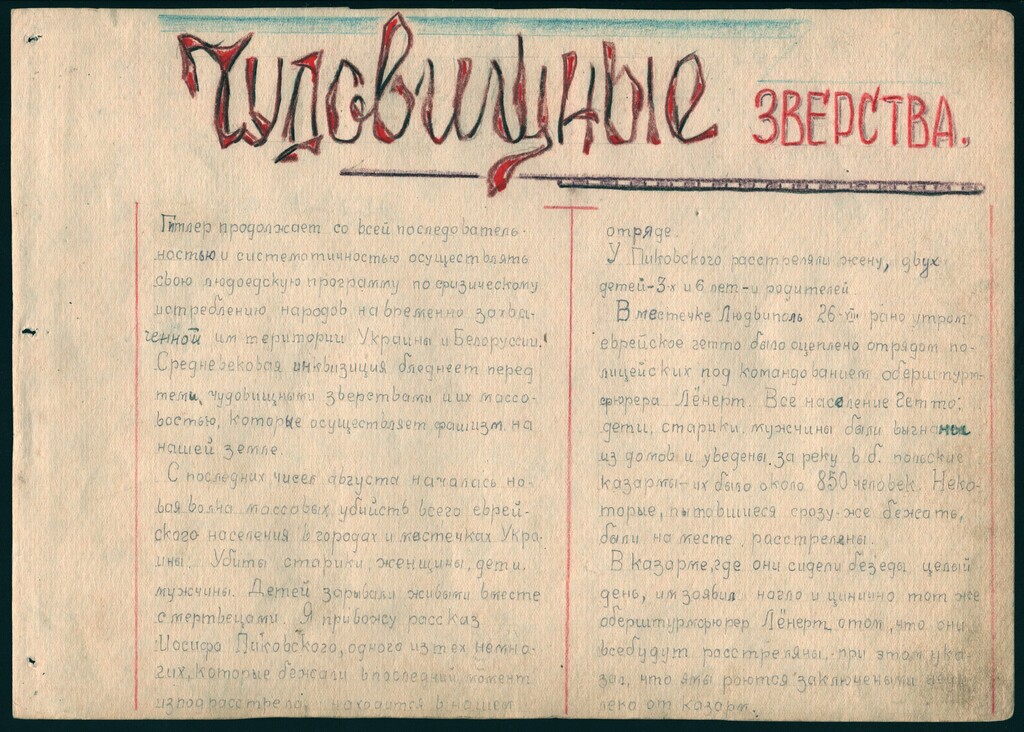 Чудовищные ЗВЕРСТВА.
Гитлер продолжает со всей последователь-
ностью и систематичностью осуществлять
свою людоедскую программу по физическому
истреблению народов на временно захва-
ченной им територии Украины и Белоруссии.
Средневековая инквизиция бледнеет перед
теми, чудовищными зверствами и их массо-
востью, которые осуществляет фашизм на
нашей земле.
С последних чисел августа началась но-
вая волна массовых убийств всего еврей-
ского населения в городах и местечках Укра-
ины. Убиты старики, женщины, дети,
мужчины. Детей зарывали живыми вместе
с мертвецами. Я привожу рассказ
Иосифа Пиковского, одного из тех немно-
гих, которые бежали в последний момент
из под расстрела, находится в нашем
отряде.
У Пиковского расстреляли жену, двух
детей-3-х и 6 лет-и родителей.
В местечке Людвиполь 26-VIII рано утром
еврейское гетто было оцеплено отрядом по-
лицейских под командованием оберштурм-
фюрера Лёнерт. Все население Гетто:
дети, старики, мужчины были выгнаны
из домов и уведены за реку в б. польские
казармы-их было около 850 человек. Неко-
торые, пытавшиеся сразу-же бежать,
были на месте расстреляны.
В казарме, где они сидели без еды целый
день, им заявил нагло и цинично тот же
оберштурмфюрер Лёнерт о том, что они
все будут расстреляны, при этом ука-
зал, что ямы роются заключеными
леко от казарм.